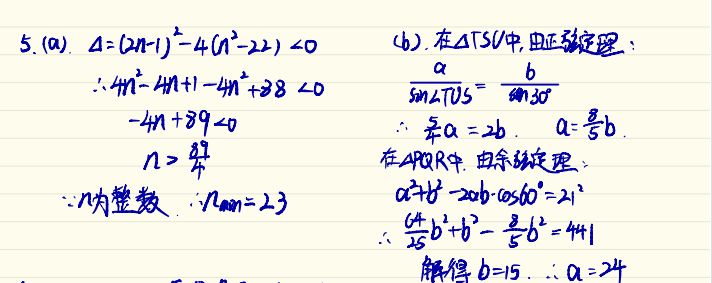 5. (a) Δ=(2n-1)²-4(n²-22)<0
∴4n²-4n+1-4n²+88<0
-4n+89<0
n>89/4
∵n为整数 ∴n_min=23
(b). 在△TSU中,由正弦定理:
a/sin∠TUS = b/sin30°
∴ 5/4 a=2b. a=8/5 b.
在△PQR中. 由余弦定理:
a²+b²-2ab·cos60°=21²
∴ 64/25 b²+b²-8/5 b²=441
解得 b=15. ∴a=24